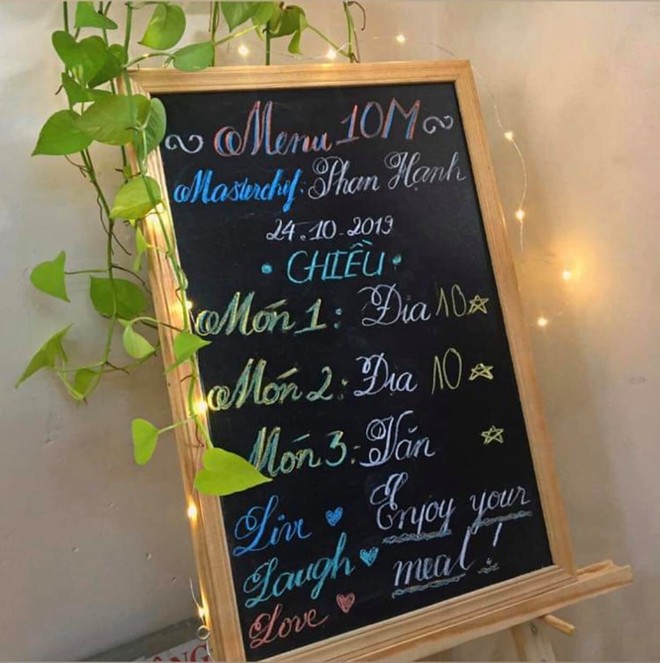 Menu 10M
Masterchef: Phan Hạnh
24.10.2019
CHIỀU
Món 1: Địa 10
Món 2: Địa 10
Món 3: Văn
Live
Laugh
Love
Enjoy your
meal!